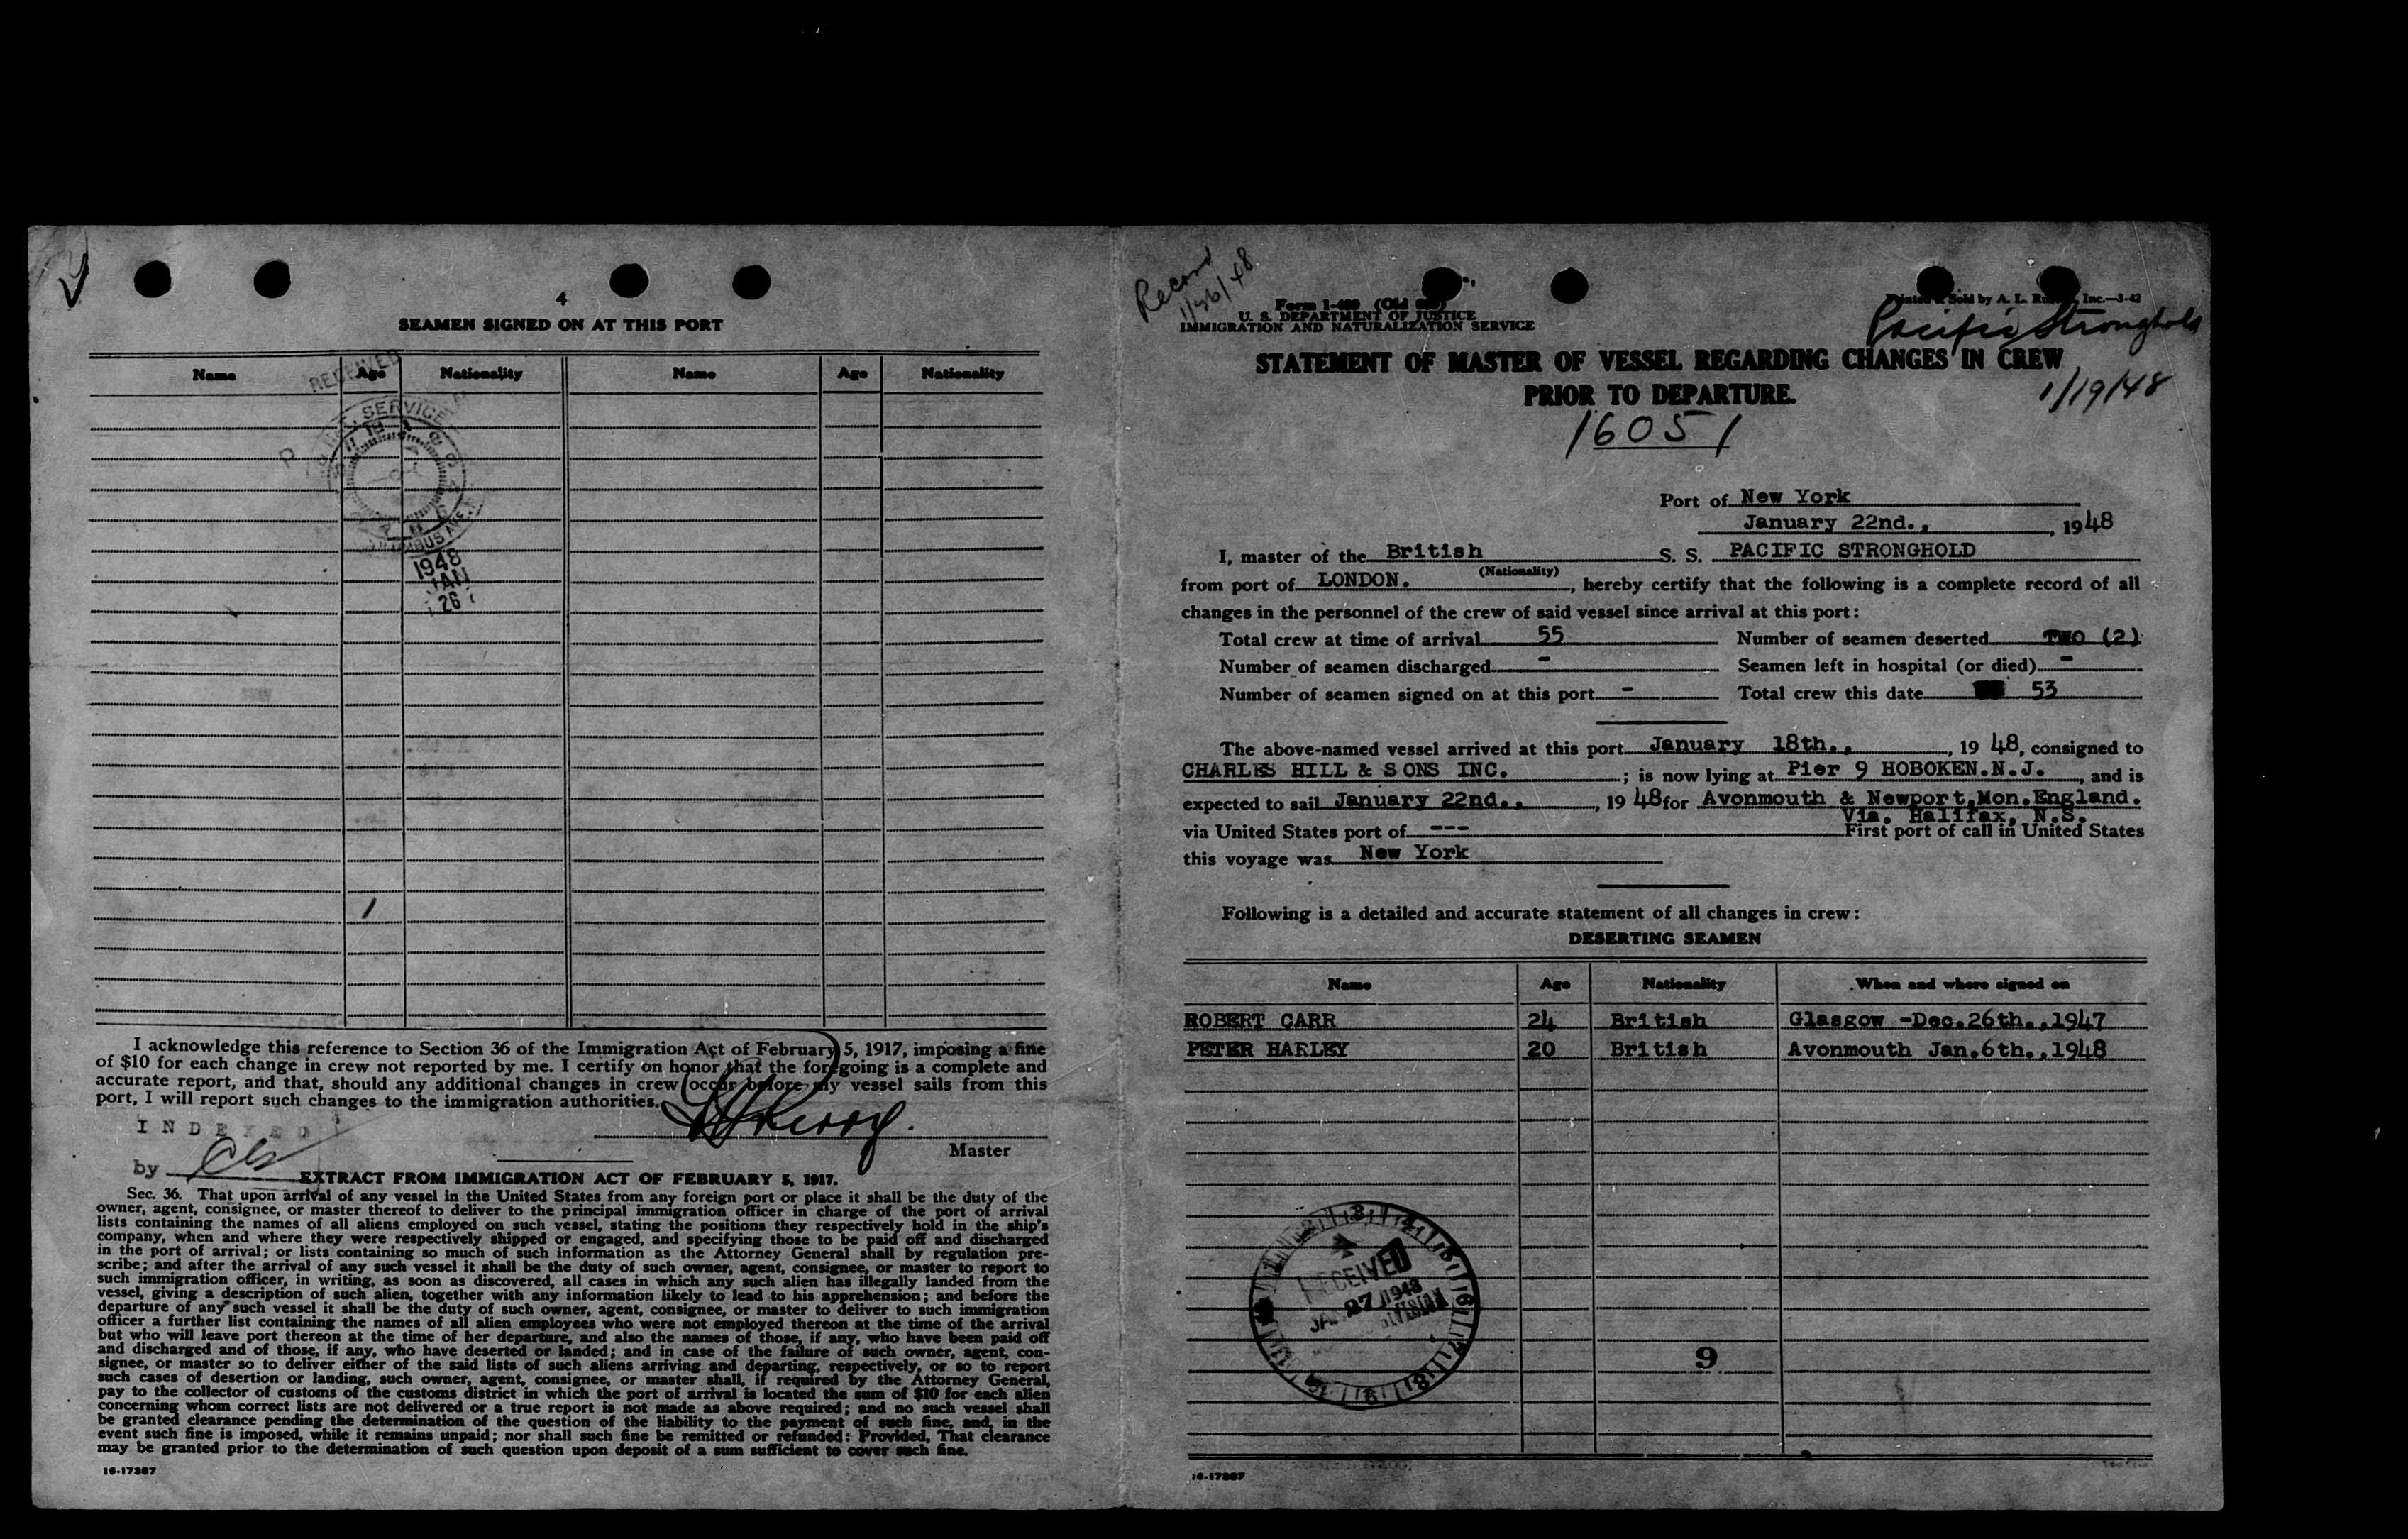 4
SEAMEN SIGNED ON AT THIS PORT
Name Age Nationality Name Age Nationality
RECEIVED
SERVICE
1948
JAN
26
I acknowledge this reference to Section 36 of the Immigration Act of February 5, 1917, imposing a fine
of $10 for each change in crew not reported by me. I certify on honor that the foregoing is a complete and
accurate report, and that, should any additional changes in crew occur before my vessel sails from this
port, I will report such changes to the immigration authorities.
INDEXED
Master
by
EXTRACT FROM IMMIGRATION ACT OF FEBRUARY 5, 1917.
Sec. 36. That upon arrival of any vessel in the United States from any foreign port or place it shall be the duty of the
owner, agent, consignee, or master thereof to deliver to the principal immigration officer in charge of the port of arrival
lists containing the names of all aliens employed on such vessel, stating the positions they respectively hold in the ship's
company, when and where they were respectively shipped or engaged, and specifying those to be paid off and discharged
in the port of arrival; or lists containing so much of such information as the Attorney General shall by regulation pre-
scribe; and after the arrival of any such vessel it shall be the duty of such owner, agent, consignee, or master to report to
such immigration officer, in writing, as soon as discovered, all cases in which any such alien has illegally landed from the
vessel, giving a description of such alien, together with any information likely to lead to his apprehension; and before the
departure of any such vessel it shall be the duty of such owner, agent, consignee, or master to deliver to such immigration
officer a further list containing the names of all alien employees who were not employed thereon at the time of the arrival
but who will leave port thereon at the time of her departure, and also the names of those, if any, who have been paid off
and discharged and of those, if any, who have deserted or landed; and in case of the failure of such owner, agent, con-
signee, or master so to deliver either of the said lists of such aliens arriving and departing, respectively, or so to report
such cases of desertion or landing, such owner, agent, consignee, or master shall, if required by the Attorney General,
pay to the collector of customs of the customs district in which the port of arrival is located the sum of $10 for each alien
concerning whom correct lists are not delivered or a true report is not made as above required; and no such vessel shall
be granted clearance pending the determination of the question of the liability to the payment of such fine, and, in the
event such fine is imposed, while it remains unpaid; nor shall such fine be remitted or refunded: Provided, That clearance
may be granted prior to the determination of such question upon deposit of a sum sufficient to cover such fine.
16-17387
Record
1/26/48
Form I-489 (Old
U. S. DEPARTMENT OF JUSTICE
IMMIGRATION AND NATURALIZATION SERVICE
Sold by A. L. Inc.—3-42
Pacific Stronghold
STATEMENT OF MASTER OF VESSEL REGARDING CHANGES IN CREW
PRIOR TO DEPARTURE.
1/19/48
16051
Port of New York
January 22nd., , 1948
I, master of the British S. S. PACIFIC STRONGHOLD
(Nationality)
from port of LONDON. , hereby certify that the following is a complete record of all
changes in the personnel of the crew of said vessel since arrival at this port:
Total crew at time of arrival 55 Number of seamen deserted TWO (2)
Number of seamen discharged - Seamen left in hospital (or died) -
Number of seamen signed on at this port - Total crew this date 53
The above-named vessel arrived at this port January 18th., , 19 48, consigned to
CHARLES HILL & SONS INC. ; is now lying at Pier 9 HOBOKEN.N.J. , and is
expected to sail January 22nd., , 19 48 for Avonmouth & Newport,Mon.England.
Via. Halifax, N.S.
via United States port of --- First port of call in United States
this voyage was New York
Following is a detailed and accurate statement of all changes in crew:
DESERTING SEAMEN
Name Age Nationality When and where signed on
ROBERT CARR 24 British Glasgow -Dec.26th.,1947
PETER HARLEY 20 British Avonmouth Jan.6th.,1948
RECEIVED
JAN 27 1948
9
16-17387